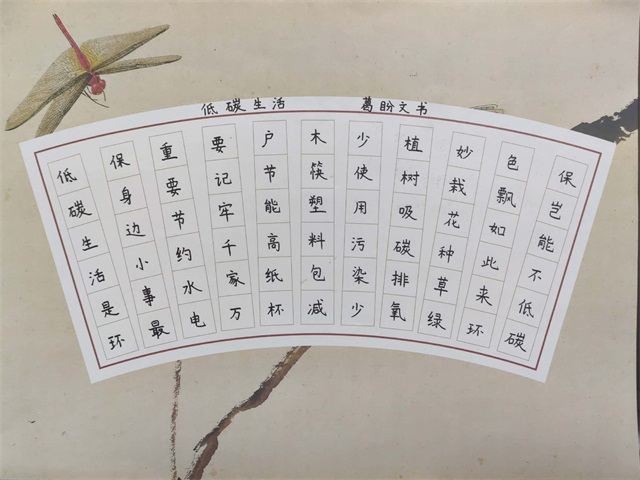 低碳生活 葛盼文书
低碳生活是环
保身边小事最
重要节约水电
要记牢千家万
户节能高纸杯
木筷塑料包减
少使用污染少
植树吸碳排氧
妙栽花种草绿
色飘如此来环
保岂能不低碳